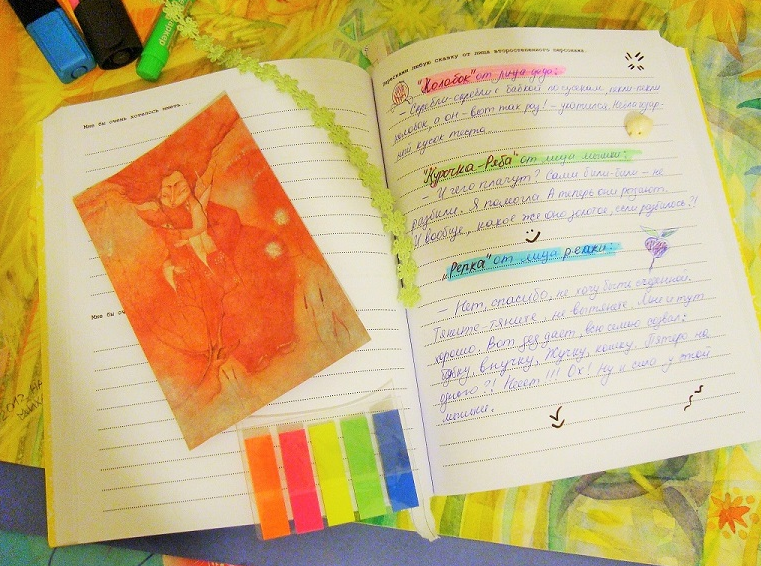 маркер
Мне бы очень хотелось иметь...
Мне бы оч
Перескажи любую сказку от лица второстепенного персонажа.
"Колобок" от лица деда:
– Скребли-скребли с бабкой по сусекам, пекли-пекли
колобок, а он – вот так раз! – укатился. Неблагодар-
ный кусок теста...
"Курочка-Ряба" от лица мышки:
– И чего плачут? Сами били-били – не
разбили. Я помогла. А теперь они рыдают.
И вообще, какое же оно золотое, если разбилось?!
"Репка" от лица репки:
– Нет, спасибо, не хочу быть съеденной.
Тяните-тяните, не вытянете. Мне и тут
хорошо. Вот дед дает, всю семью созвал:
бабку, внучку, Жучку, кошку. Пятеро на
одного?! Насет!!! Ох! Ну и сила у этой
мышки.
2013